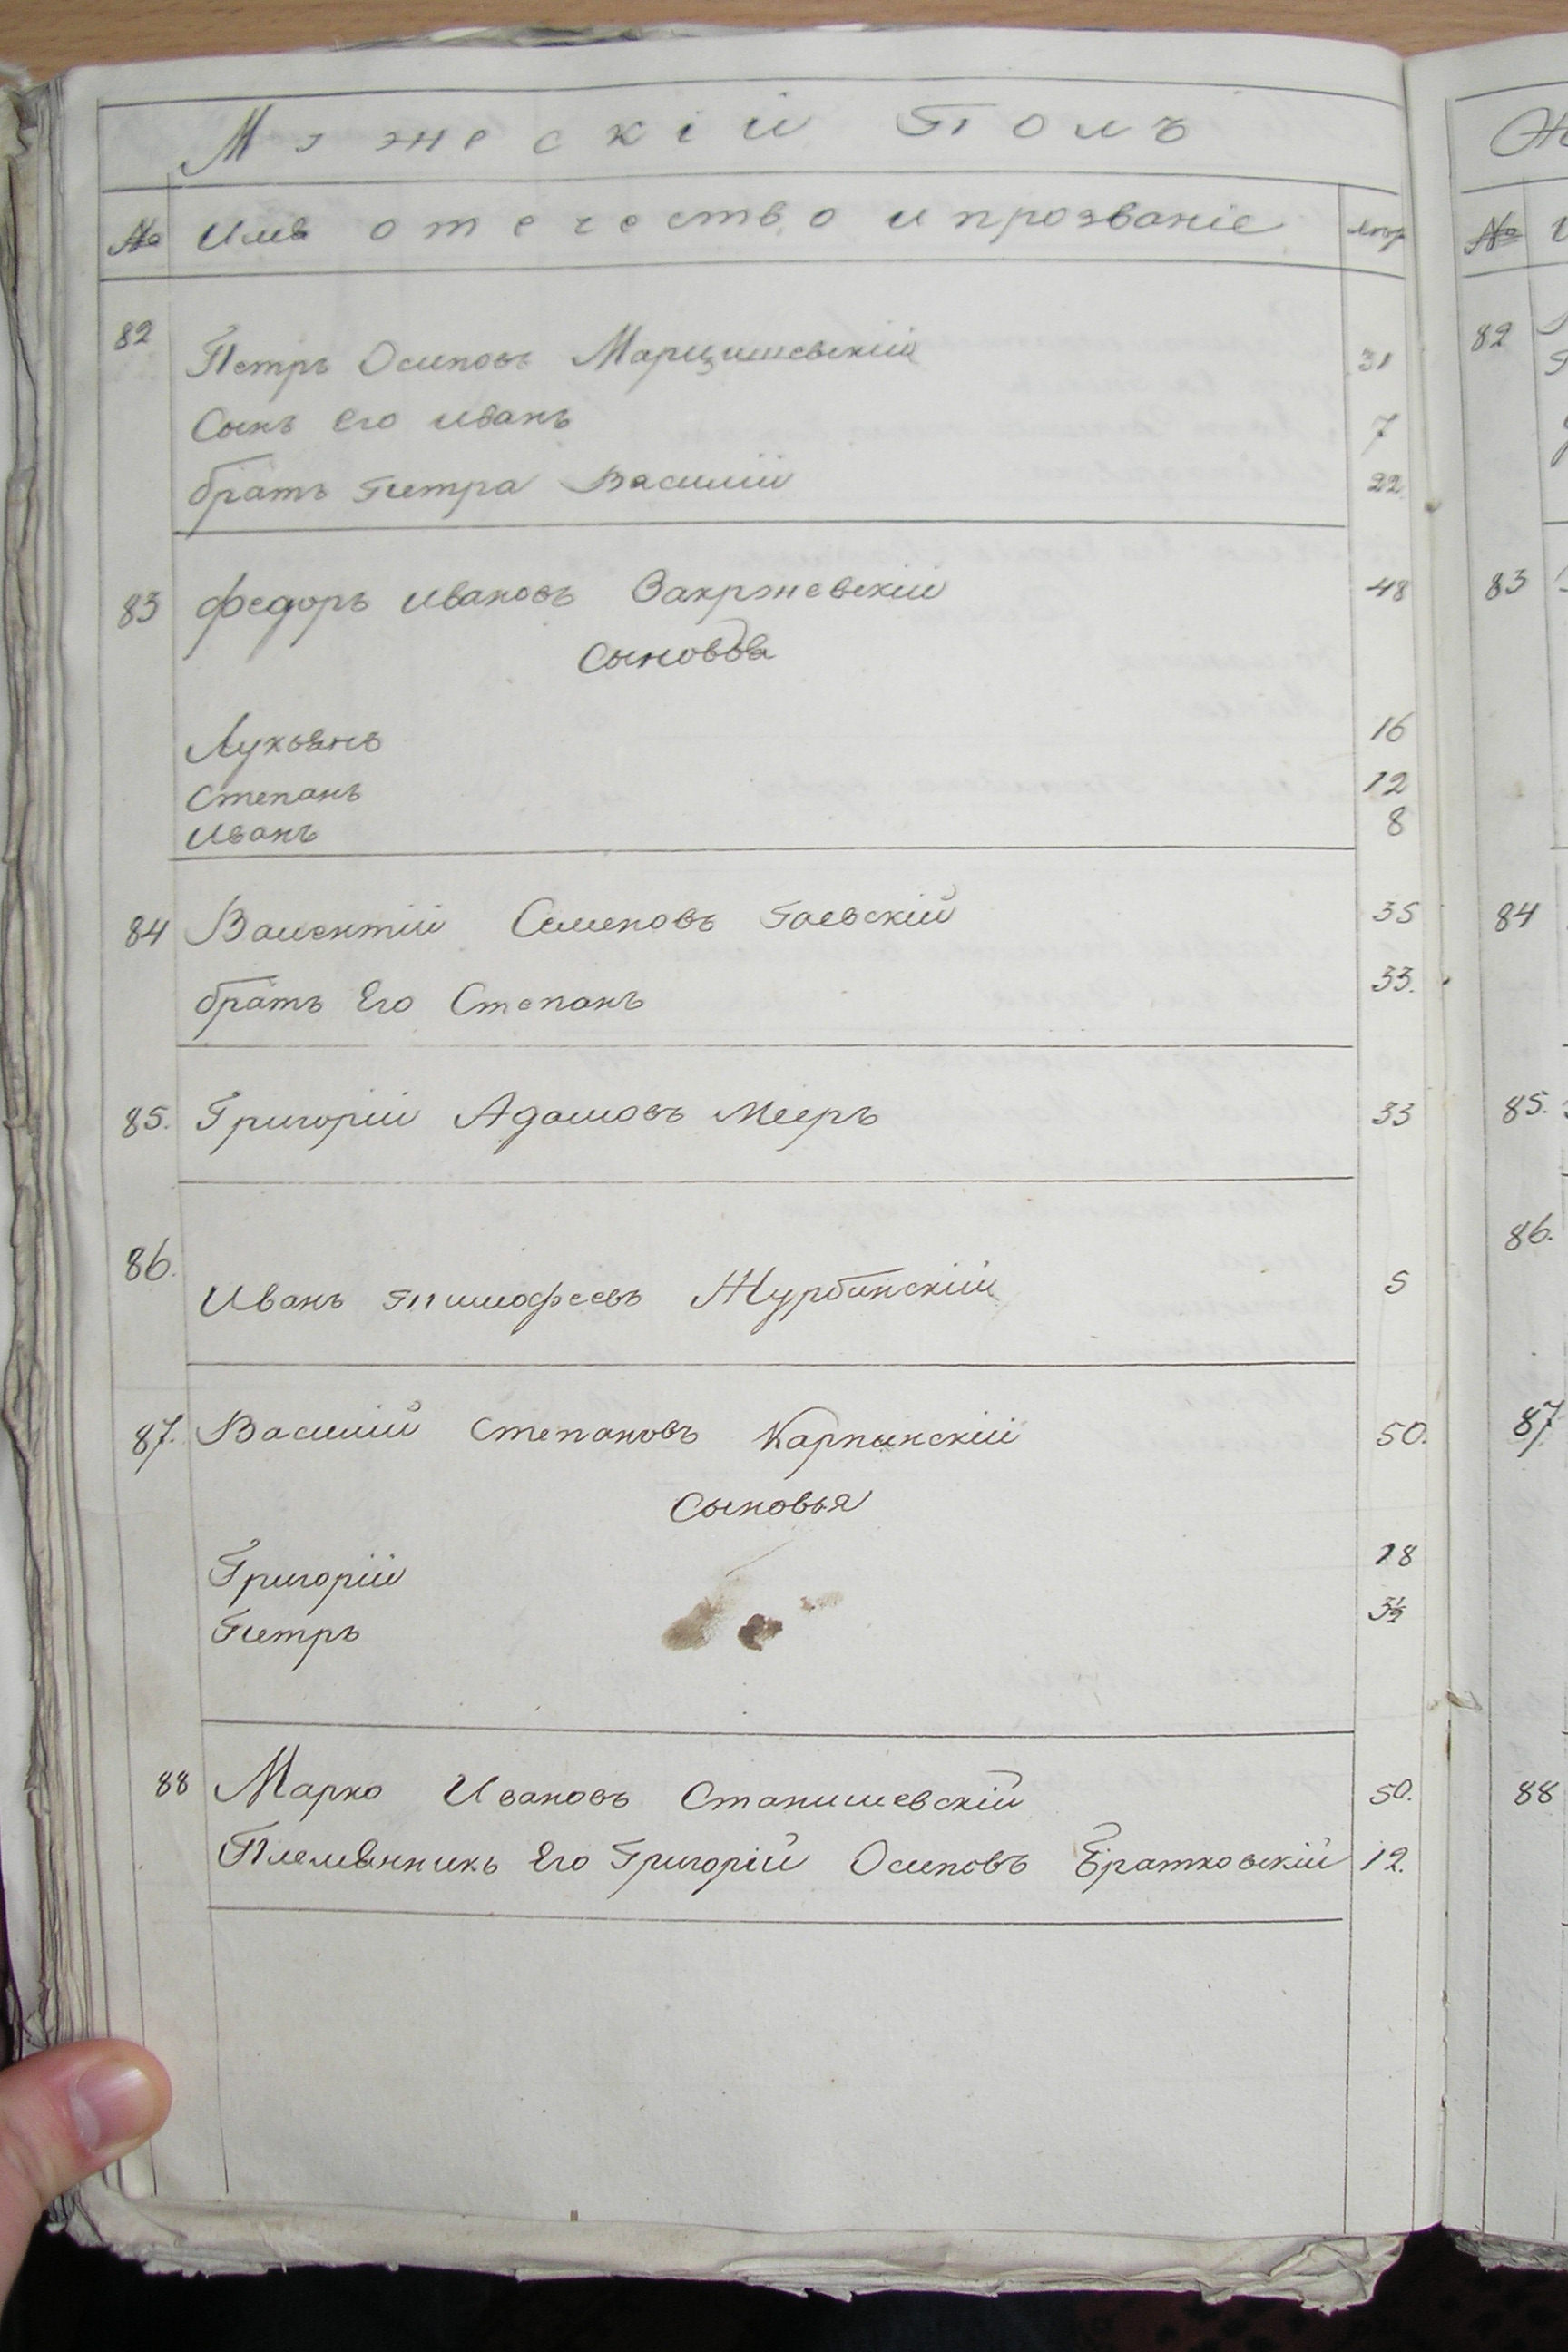 Мужескій Полъ
№ Имя отечество и прозваніе лѣтъ № И
82 Петръ Осиповъ Марцишевскій 31 82
Сынъ его иванъ 7
братъ Петра Василій 22
83 Федоръ ивановъ Закржевскій 48 83
Сыновья
Лукьянъ 16
Степанъ 12
иванъ 8
84 Валентій Семеновъ Гаевскій 35 84
братъ Его Степанъ 33.
85. Григорій Адамовъ Мееръ 33 85.
86. Иванъ Тимофеевъ Журбинскій 5 86.
87. Василій Степановъ Карпинскій 50. 87
Сыновья
Григорій 18
Петръ 3½
88 Марко Ивановъ Станишевскій 50. 88
Племянникъ Его Григорій Осиповъ Братковскій 12.